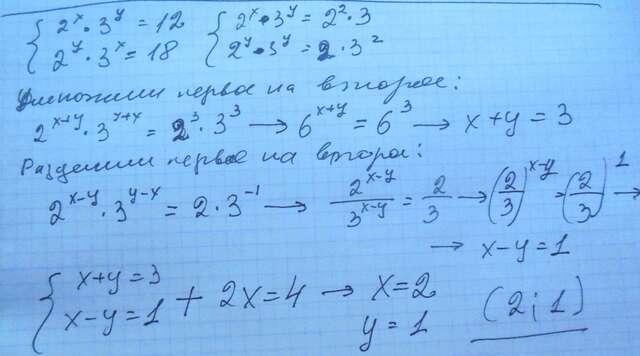 { 2^x · 3^y = 12 { 2^x · 3^y = 2^2 · 3
2^y · 3^x = 18 2^y · 3^y = 2 · 3^2
Умножим первое на второе:
2^(x+y) · 3^(y+x) = 2^3 · 3^3 → 6^(x+y) = 6^3 → x+y = 3
Разделим первое на второе:
2^(x-y) · 3^(y-x) = 2 · 3^(-1) → 2^(x-y)/3^(x-y) = 2/3 → (2/3)^(x-y) = (2/3)^1 →
→ x-y = 1
{ x+y = 3
x-y = 1 + 2x = 4 → x = 2
y = 1 (2; 1)